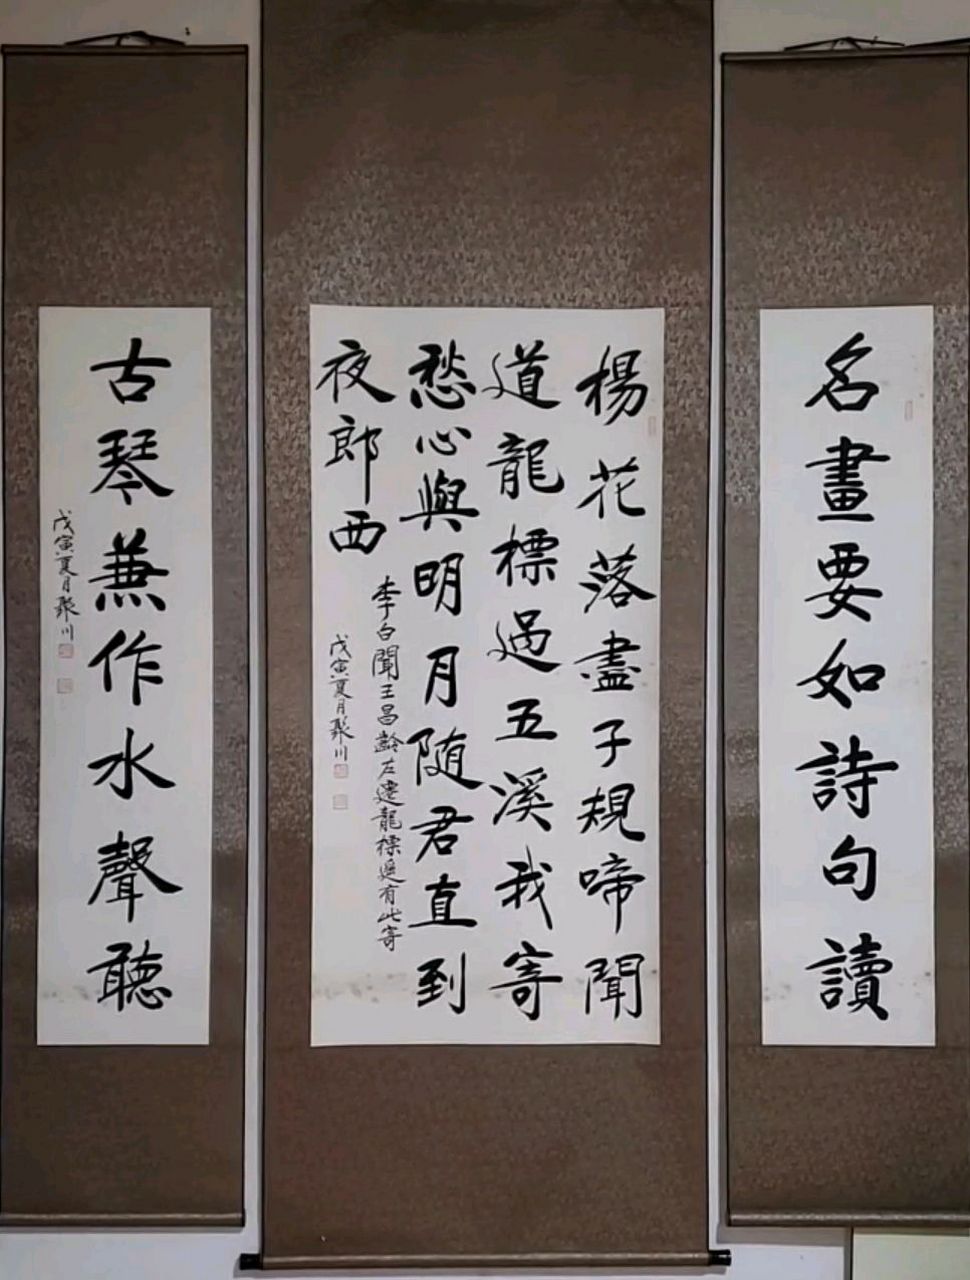 名畫要如詩句讀
楊花落盡子規啼聞
道龍標過五溪我寄
愁心與明月随君直到
夜郎西
李白聞王昌齡左遷龍標遥有此寄
戊寅夏月聚川
古琴兼作水聲聽
戊寅夏月聚川